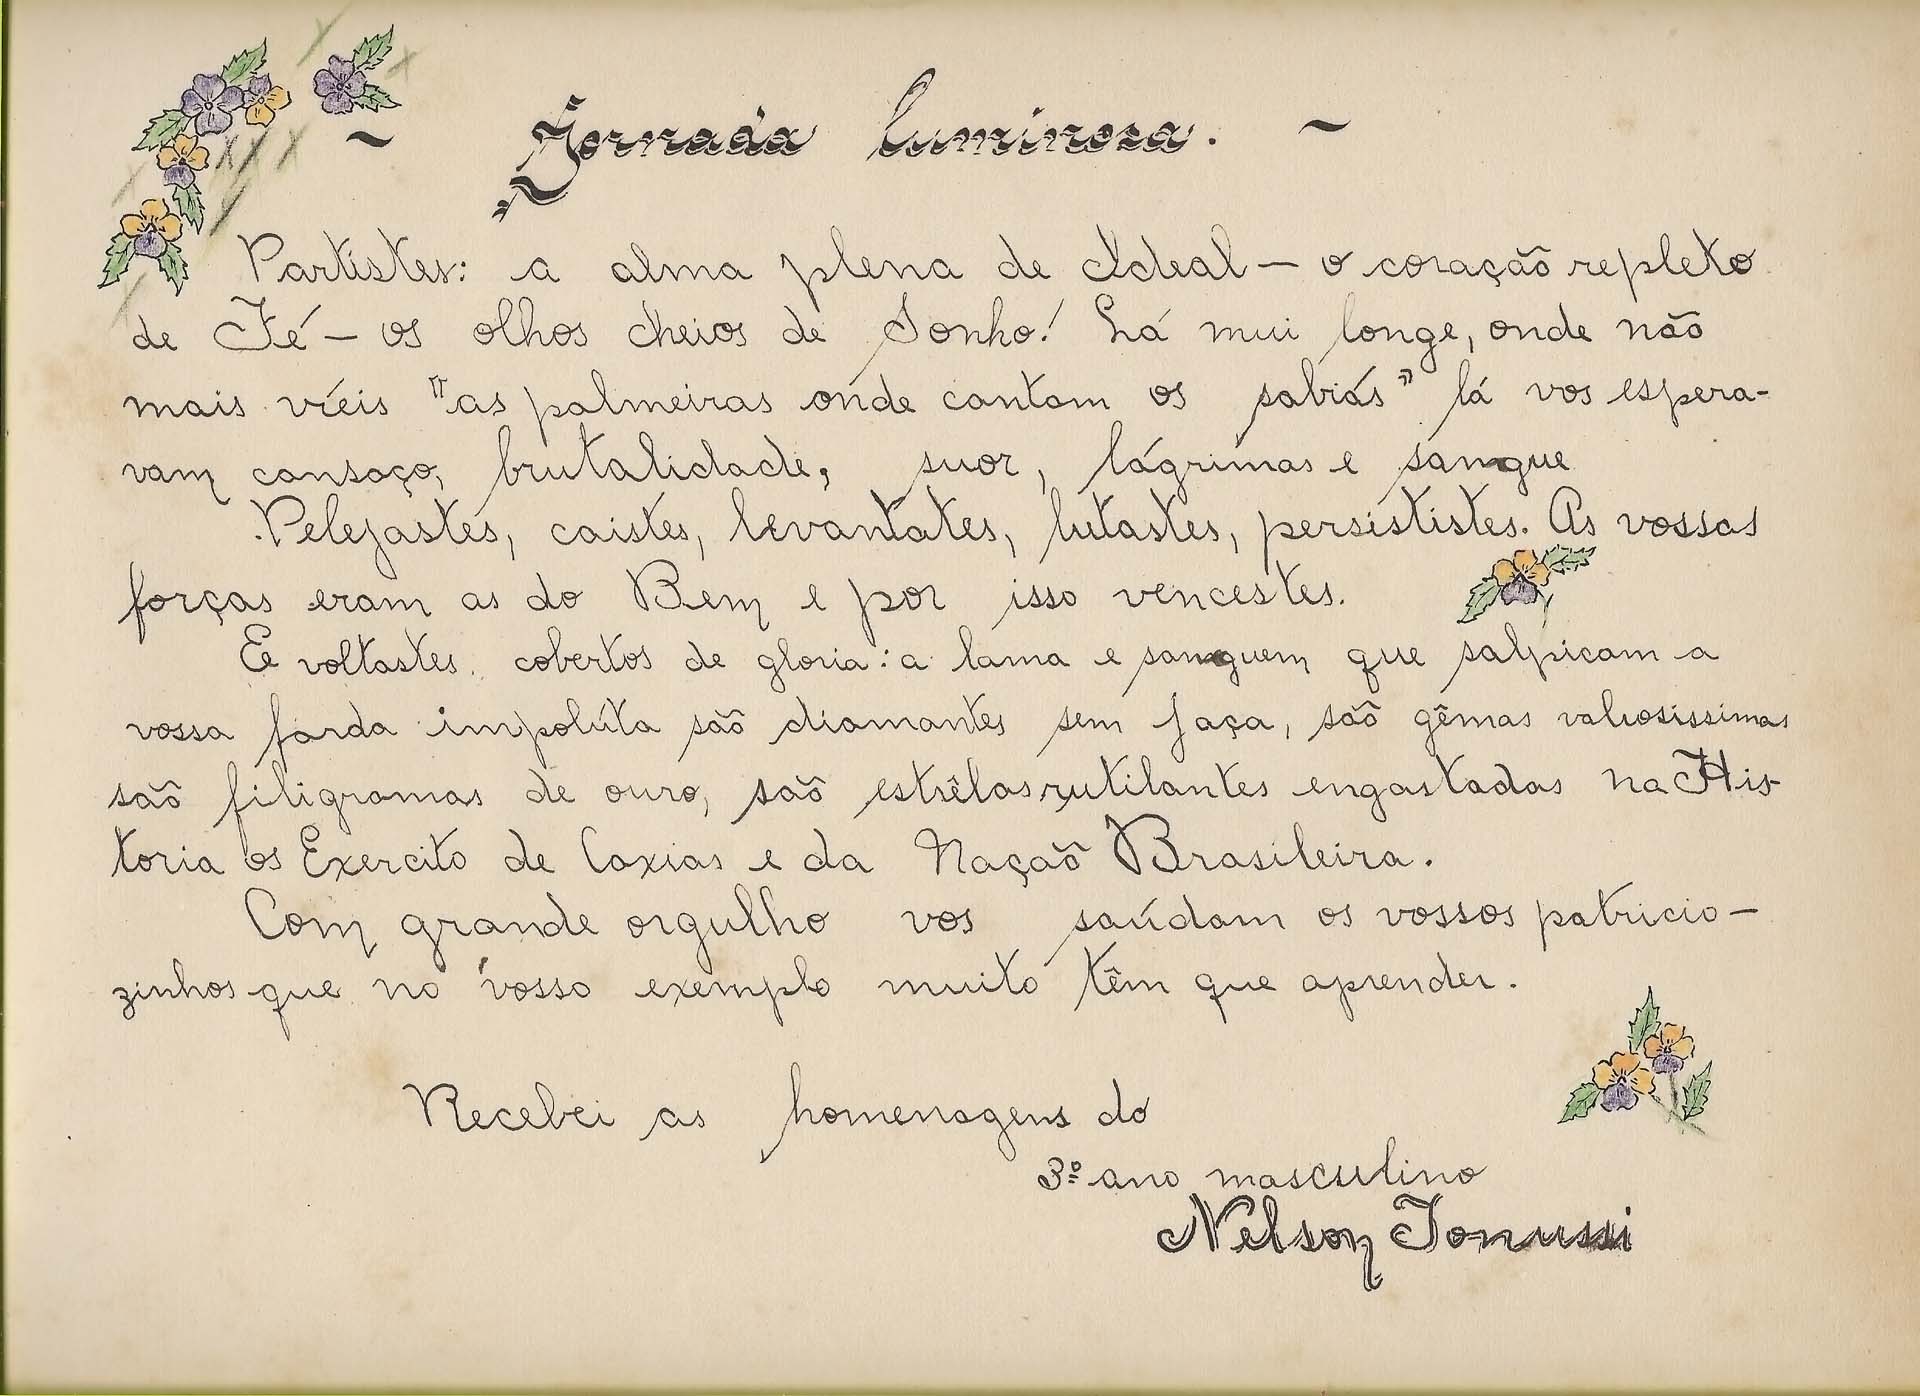 ~ Jornada luminosa. ~
Partistes: a alma plena de Ideal — o coração repleto
de Fé — os olhos cheios de Sonho! Lá mui longe, onde não
mais víeis "as palmeiras onde cantam os sabiás" lá vos espera-
vam cansaço, brutalidade, suor, lágrimas e sangue
Pelejastes, caistes, levantates, lutastes, persististes. As vossas
forças eram as do Bem e por isso vencestes.
E voltastes cobertos de gloria: a lama e sanguem que salpicam a
vossa farda impolúta são diamantes sem jaça, são gêmas valiosissimas
são filigramas de ouro, são estrêlas rutilantes engastadas na His-
toria os Exercito de Caxias e da Nação Brasileira.
Com grande orgulho vos saúdam os vossos patricio-
zinhos que no vosso exemplo muito têm que aprender.
Recebei as homenagens do
3º ano masculino
Nelson Tonussi